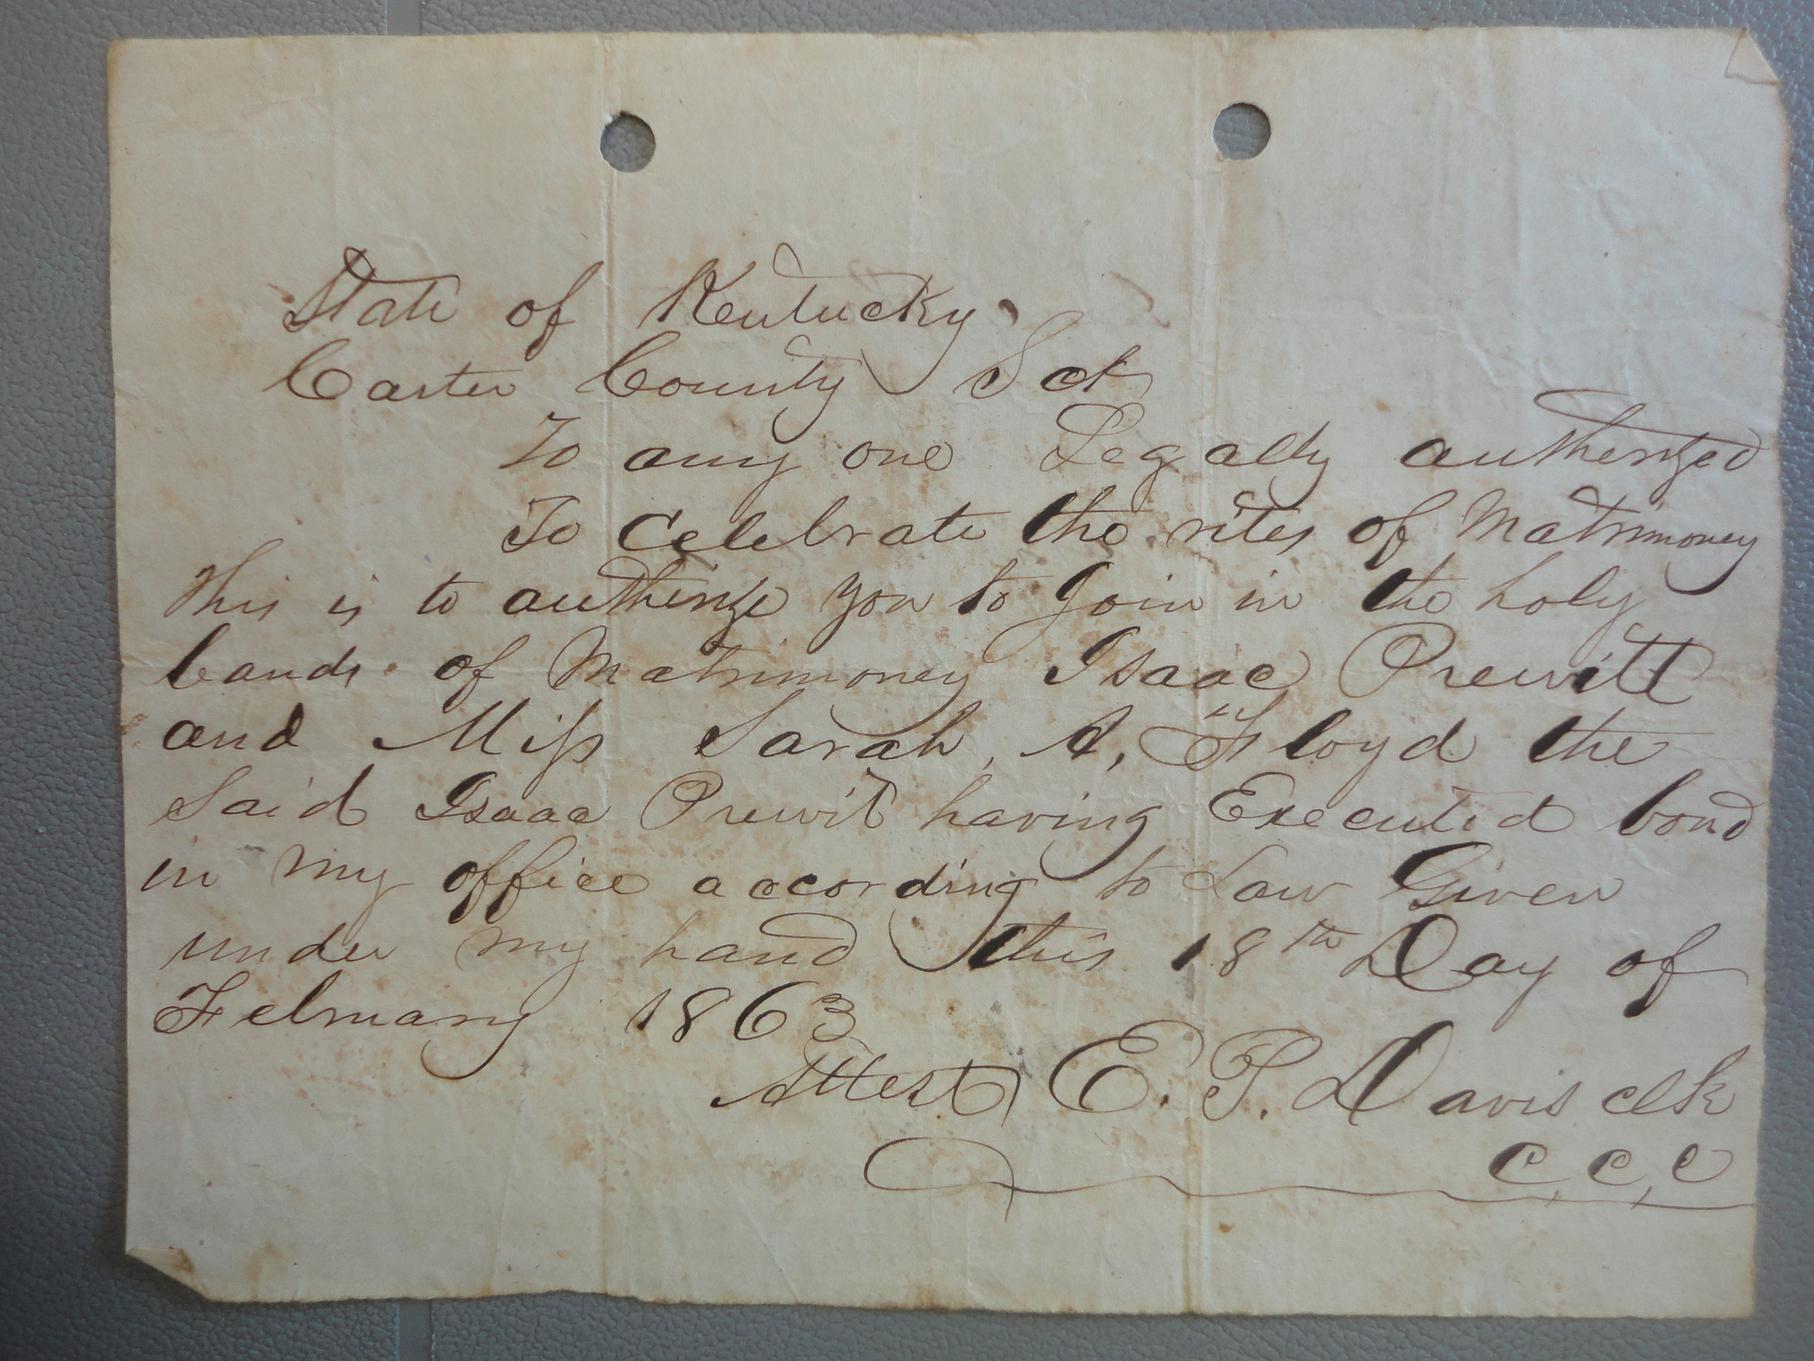 State of Kentucky
Carter County Sct
To any one Legally autherized
To Celebrate the rites of Matrimoney
This is to autherize you to Join in the holy
bands of Matrimoney Isaac Prewitt
and Miss Sarah, A, Floyd the
Said Isaac Prewit having Executed bond
in my office according to Law Given
under my hand this 18th Day of
February 1863
Attest E. P. Davis clk
C, C, C